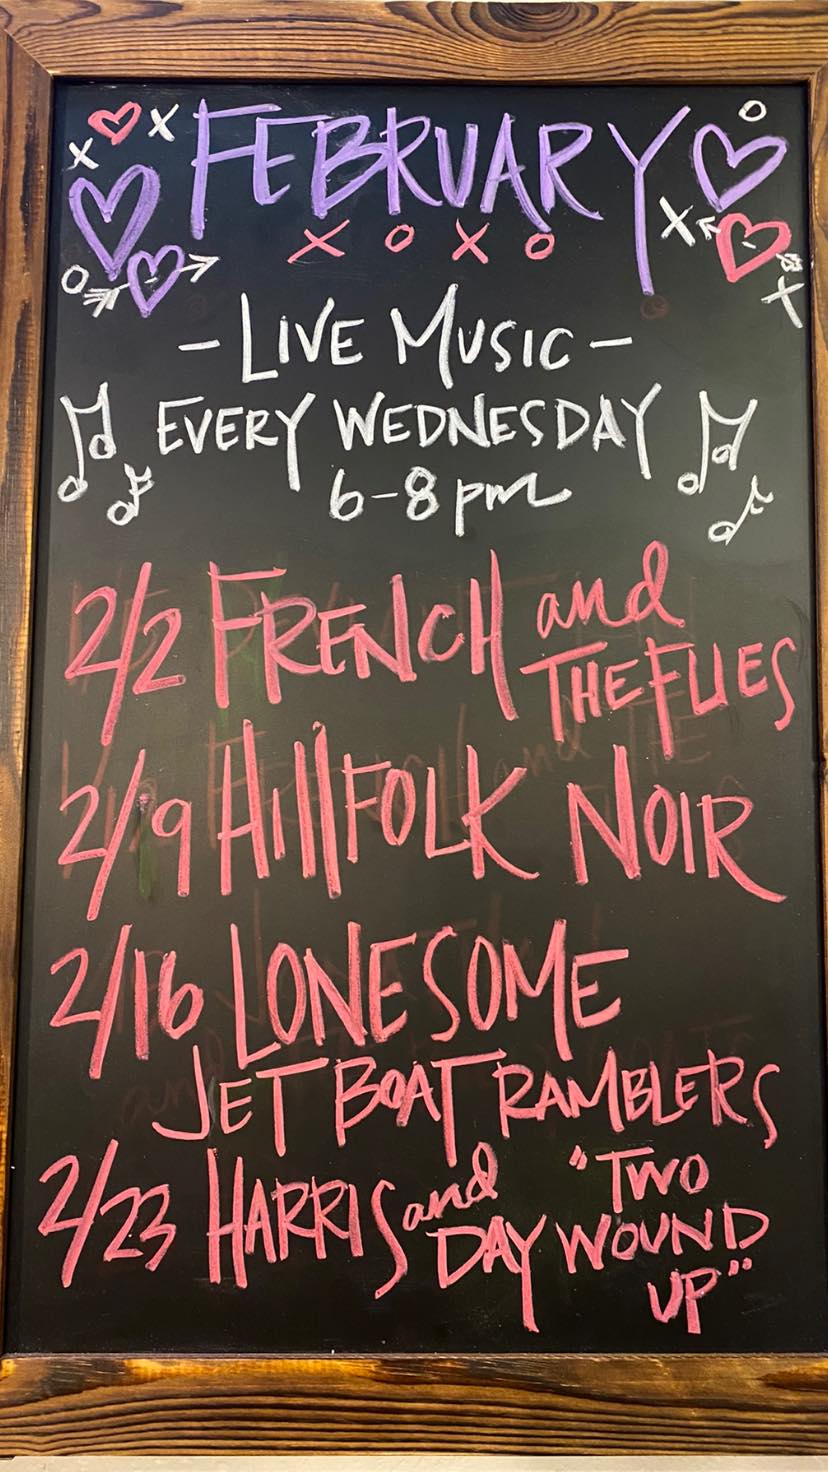 FEBRUARY
X O X O
- LIVE MUSIC -
EVERY WEDNESDAY
6-8pm
2/2 FRENCH and
THE FLIES
2/9 HillFOLK NOIR
2/16 LONESOME
JET BOAT RAMBLERS
2/23 HARRIS and "TWO
DAY WOUND
UP"